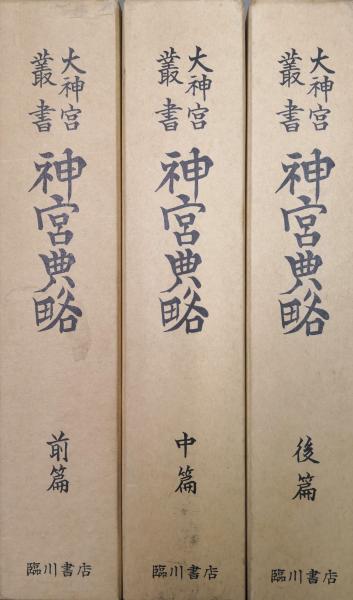 大神宮
叢書
神宮典略
前篇
臨川書店
大神宮
叢書
神宮典略
中篇
臨川書店
大神宮
叢書
神宮典略
後篇
臨川書店